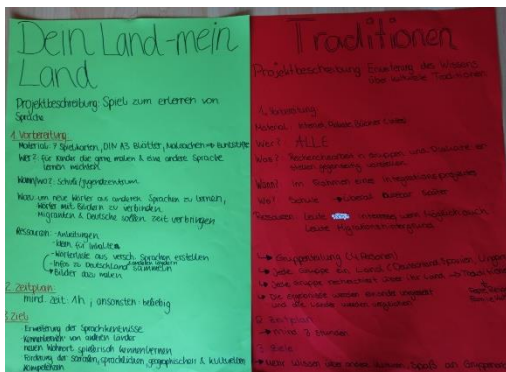 Dein Land-mein
Land
Projektbeschreibung: Spiel zum erlernen von
Sprache
1. Vorbereitung
Material: ? Spielkarten, DIN A3 Blätter, Malsachen Buntstifte
Wer?: für Kinder die gerne malen & eine andere Sprache
lernen möchten
Wann/wo?: Schule/Jugendzentrum
Wozu: um neue Wörter aus anderen Sprachen zu lernen,
Wörter mit Bildern zu verbinden.
Migranten & Deutsche sollen Zeit verbringen
Ressourcen: - Anleitungen
- Ideen für Inhalte
- Wörterliste aus versch. Sprachen erstellen
- Infos zu Deutschland sammeln
Bilder dazu malen
2. Zeitplan
mind. Zeit: 1h, ansonsten beliebig
3. Ziel
- Erweiterung der Sprachkenntnisse
- Kennenlernen von anderen Länder
- neuen Wohnort spielerisch kennenlernen
- Förderung der sozialen, sprachlichen, geographischen & kulturellen
Kompetenzen
Traditionen
Projektbeschreibung: Erweiterung des Wissens
über kulturelle Traditionen
1. Vorbereitung:
Material: Internet, Plakate, Bücher
Wer?: ALLE
Was?: Recherchearbeit in Gruppen und
gegenseitig
Wann?: im Rahmen eines Integrationsprojektes
Wo?: Schule
Ressourcen: Leute wenn möglich auch
Leute Migrationshintergrund
Gruppeneinteilung (4 Personen)
Jede Gruppe ein Land (Deutschland, Spanien,
Jede Gruppe recherchiert über ihr Land
Die Ergebnisse werden
und die Länder werden verglichen
2. Zeitplan
mind. 3 Stunden
3. Ziele
Mehr Wissen über Spaß an